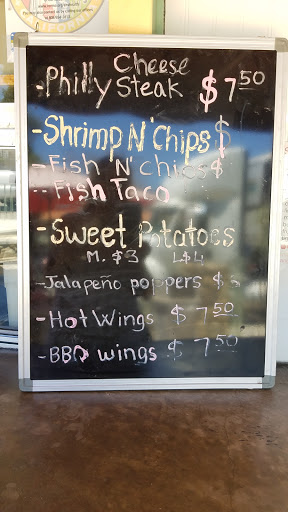 Cheese
-Philly Steak $7.50
-Shrimp N' Chips $
-Fish 'N' Chips $
-Fish Taco
-Sweet Potatoes
M. $3 L $4
-Jalapeño poppers $5
-Hot Wings $ 7.50
-BBQ wings $ 7.50